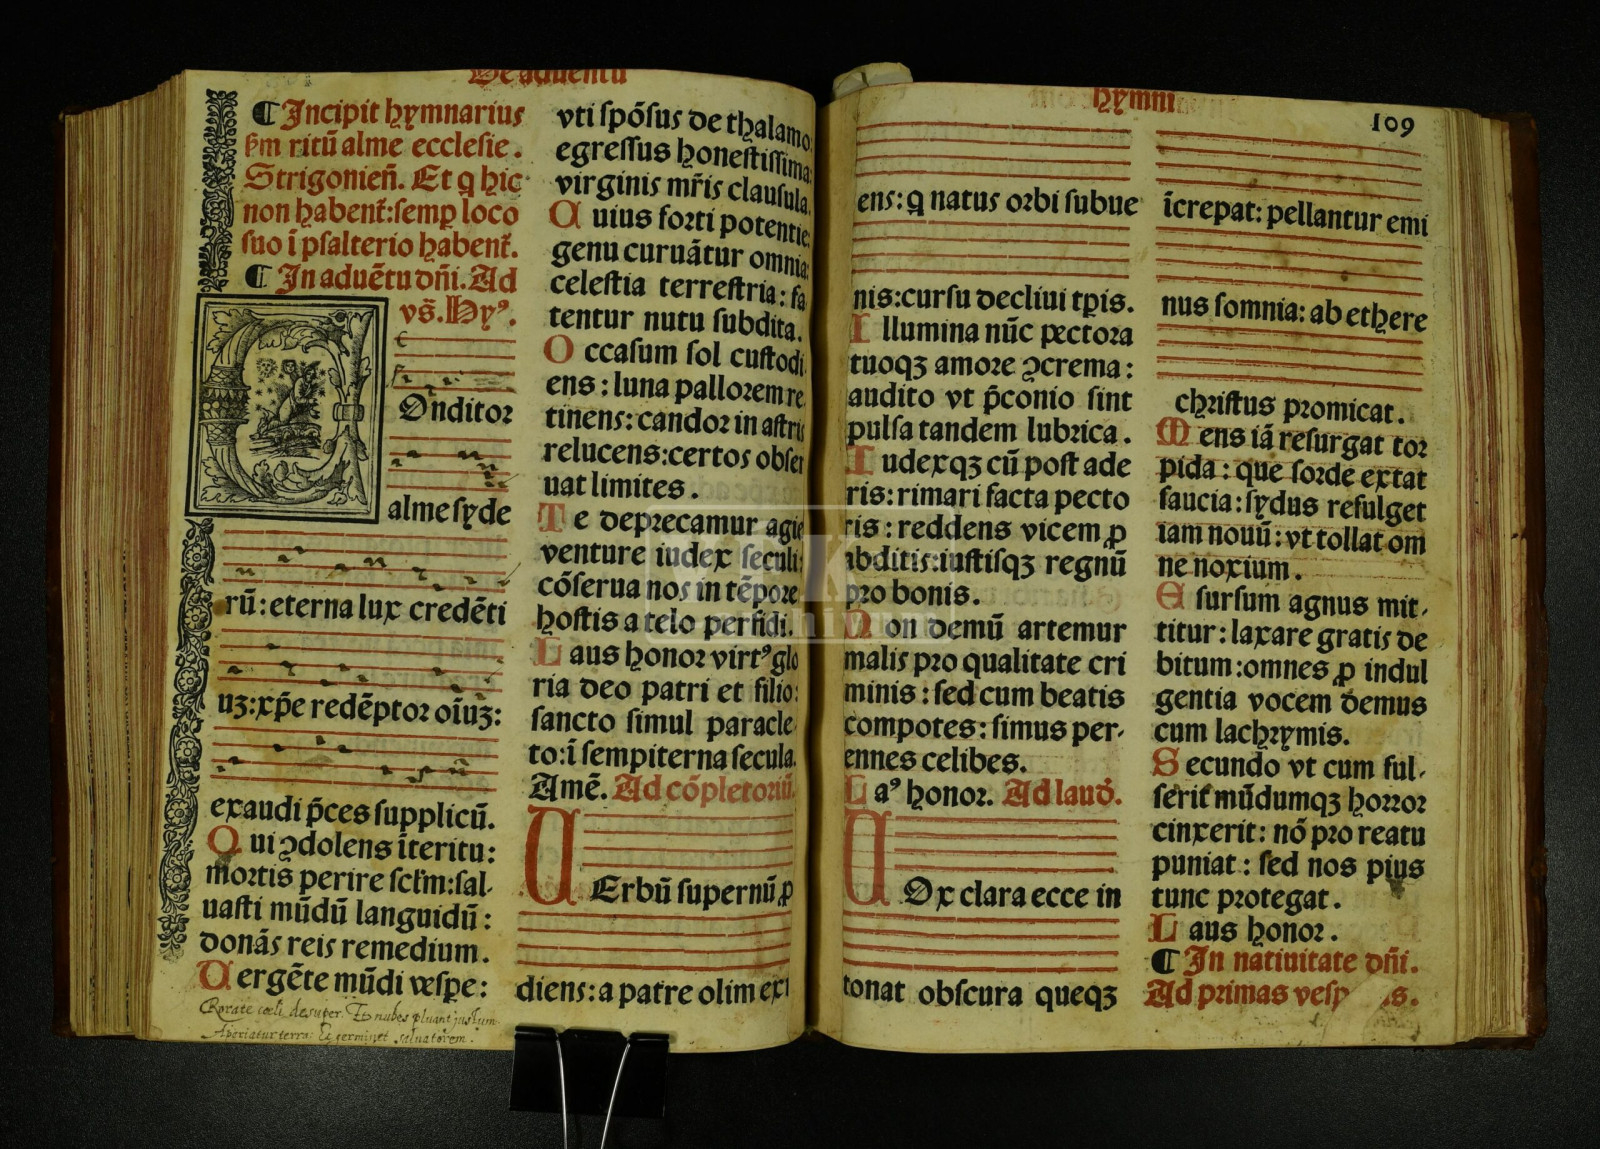 De aduentu
¶ Incipit hymnarius
s̄m ritū alme ecclesie.
Strigonien̄. Et q hic
non habent̄: semꝑ loco
suo ī psalterio habent̄.
¶ In aduētu dn̄i. Ad
vs̄. Hyꝰ.
COnditor
alme syde
rū: eterna lux credēti
uꝫ: xp̄e redēptor oīuꝫ:
exaudi p̄ces supplicū.
Qui ꝯdolens īteritu:
mortis perire sc̄lm: sal-
uasti mūdū languidū:
donās reis remedium.
Uergēte mūdi vespe:
Rorate cœli desuper. Et nubes pluant justum
Aperiatur terra: Et germinet salvatorem.
vti spōsus de thalamo:
egressus honestissima:
virginis mr̄is clausula.
Cuius forti potentie:
genu curuātur omnia:
celestia terrestria: fa
tentur nutu subdita.
Occasum sol custodi
ens: luna pallorem re
tinens: candor in astris
relucens: certos obser
uat limites.
Te deprecamur agie
venture iudex seculi:
cōserua nos in tēpore
hostis a telo perfidi.
Laus honor virtꝰ glo
ria deo patri et filio:
sancto simul paracle-
to: ī sempiterna secula.
Amē. Ad cōpletoriū.
UErbū supernū ꝓ
diens: a patre olim exi
Hymni
109
ens: q natus orbi subue
nis: cursu decliui tp̄is.
Illumina nūc pectora
tuoqꝫ amore ꝯcrema:
audito vt p̄conio sint
pulsa tandem lubrica.
Iudexqꝫ cū post ade
ris: rimari facta pecto
ris: reddens vicem ꝓ
abditis: iustisqꝫ regnū
pro bonis.
Non demū artemur
malis pro qualitate cri
minis: sed cum beatis
compotes: simus per-
ennes celibes.
Laꝰ honor. Ad laud̄.
UOx clara ecce in
tonat obscura queqꝫ
īcrepat: pellantur emi
nus somnia: ab ethere
christus promicat.
Mens iā resurgat tor
pida: que sorde extat
saucia: sydus refulget
iam nouū: vt tollat om
ne noxium.
E sursum agnus mit-
titur: laxare gratis de
bitum: omnes ꝓ indul
gentia vocem demus
cum lachrymis.
Secundo vt cum ful-
serit mūdumqꝫ horror
cinxerit: nō pro reatu
puniat: sed nos pius
tunc protegat.
Laus honor.
¶ In natiuitate dn̄i.
Ad primas vesp s.